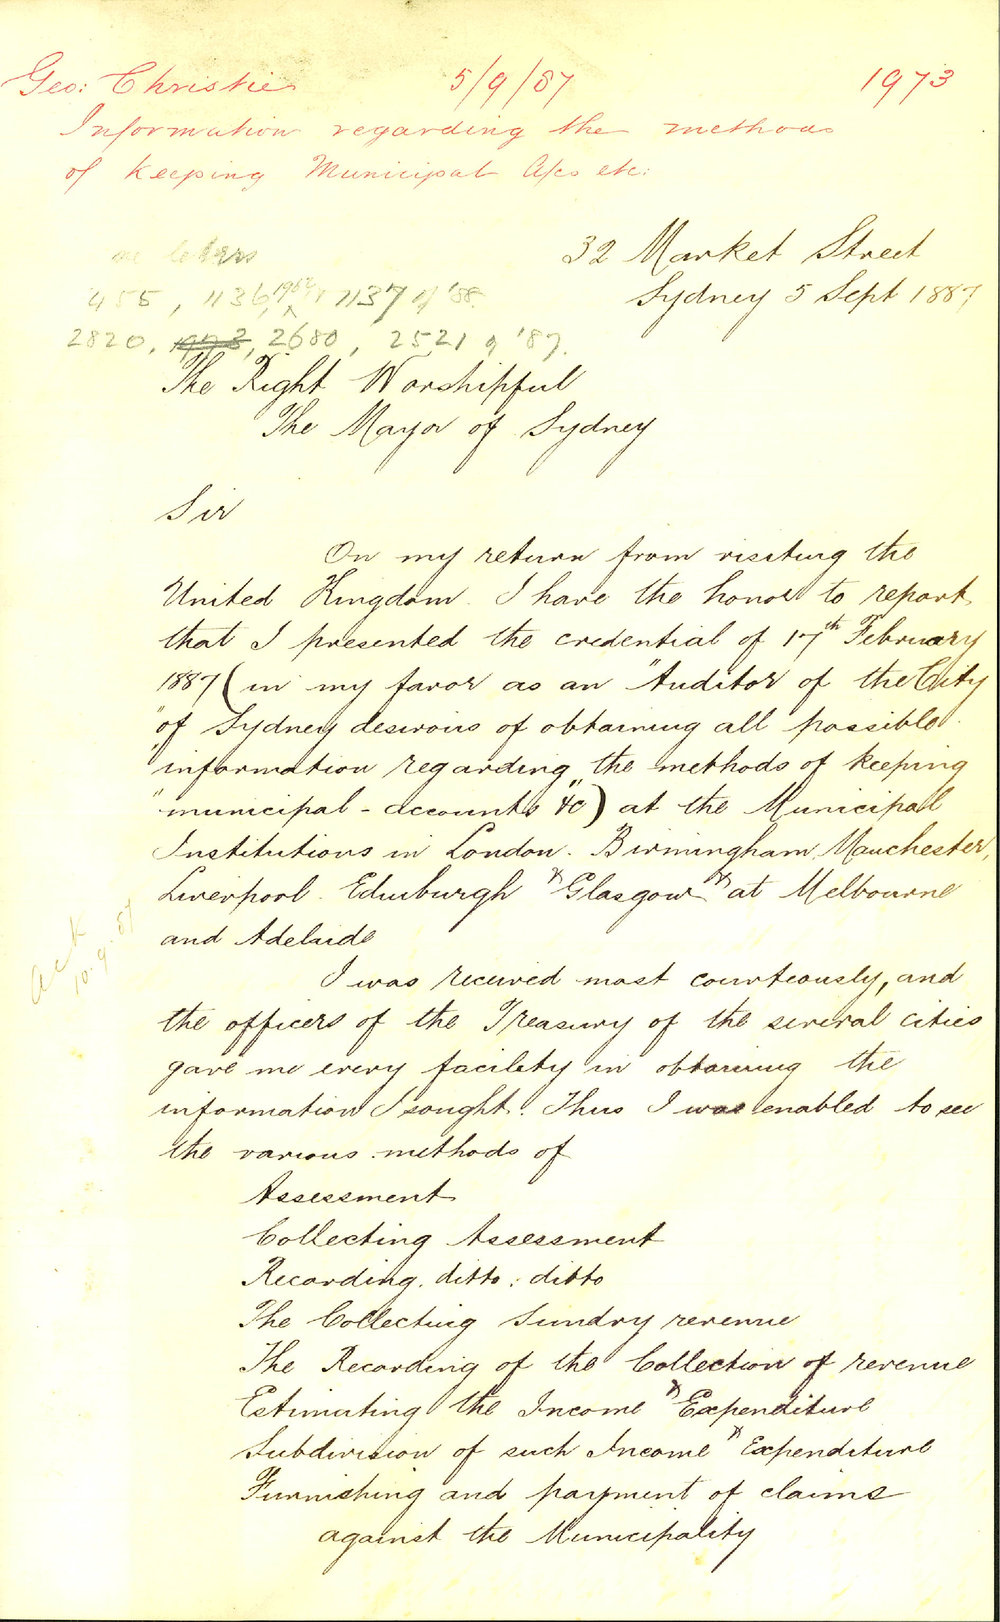 Geo: Christie 5/9/87 1973
Information regarding the methods
of keeping Municipal A/cs etc:
32 Market Street
Sydney 5 Sept 1887
letters
455, 1136, 1137 of '88
2820, 1973, 2680, 2521 of '87.
The Right Worshipful
The Mayor of Sydney
Sir
On my return from visiting the
United Kingdom. I have the honor to report
that I presented the credential of 17th February
1887 (in my favor as an "Auditor of the City
"of Sydney desirous of obtaining all possible
"information regarding the methods of keeping
"municipal-accounts &c") at the Municipal
Institutions in London. Birmingham, Manchester,
Liverpool. Edinburgh & Glasgow & at Melbourne
and Adelaide
I was received most courteously, and
the officers of the Treasury of the several cities
gave me every facility in obtaining the
information I sought. Thus I was enabled to see
the various methods of
Assessment
Collecting Assessment
Recording. ditto. ditto
The Collecting Sundry revenue
The Recording of the Collection of revenue
Estimating the Income & Expenditure
Subdivision of such Income & Expenditure
Furnishing and payment of claims
against the Municipality
Ack
10.9.87